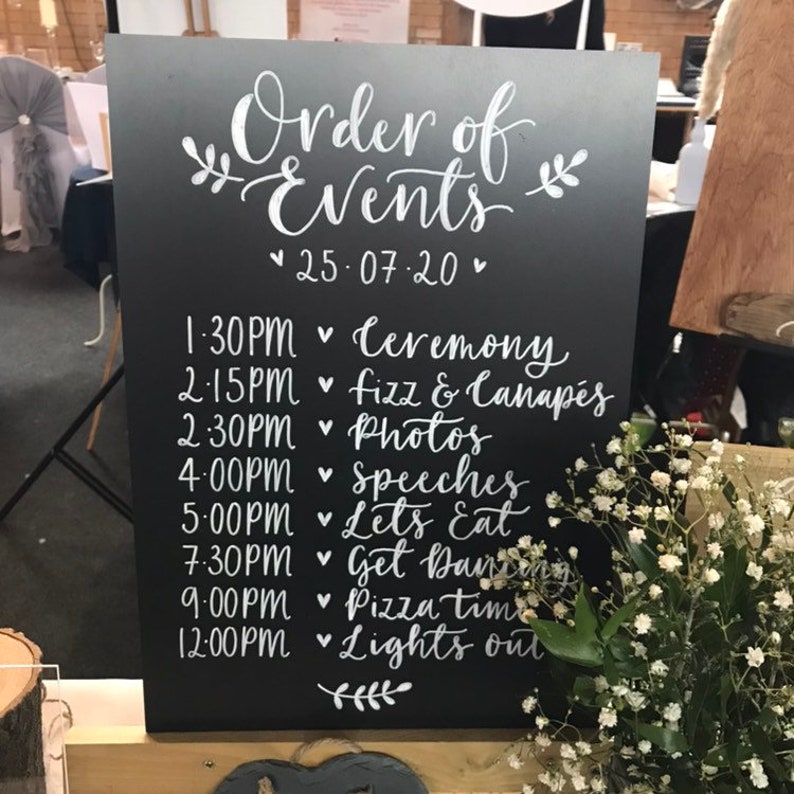 Order of
Events
25·07·20
1·30PM ♥ Ceremony
2·15PM ♥ Fizz & Canapés
2·30PM ♥ Photos
4·00PM ♥ Speeches
5·00PM ♥ Lets Eat
7·30PM ♥ Get Dancing
9·00PM ♥ Pizza time
12:00PM ♥ Lights out